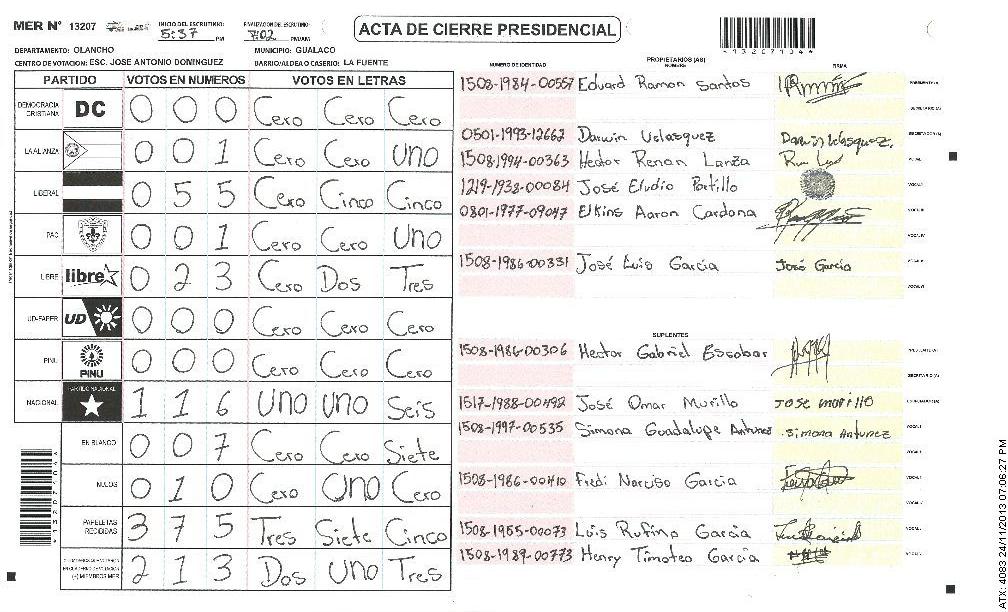 MER N° 13207 INICIO DEL ESCRUTINIO: 5:37 PM FINALIZACION DEL ESCRUTINIO: 7:02 PM/AM
ACTA DE CIERRE PRESIDENCIAL
*13207104*
DEPARTAMENTO: OLANCHO MUNICIPIO: GUALACO
CENTRO DE VOTACION: ESC. JOSE ANTONIO DOMINGUEZ BARRIO/ALDEA O CASERIO: LA FUENTE
PARTIDO VOTOS EN NUMEROS VOTOS EN LETRAS
DEMOCRACIA CRISTIANA DC 0 0 0 Cero Cero Cero
LA ALIANZA 0 0 1 Cero Cero Uno
LIBERAL 0 5 5 Cero Cinco Cinco
PAC 0 0 1 Cero Cero Uno
LIBRE libre 0 2 3 Cero Dos Tres
UD-FAPER UD 0 0 0 Cero Cero Cero
PINU PINU 0 0 0 Cero Cero Cero
NACIONAL PARTIDO NACIONAL 1 1 6 Uno Uno Seis
EN BLANCO 0 0 7 Cero Cero Siete
NULOS 0 1 0 Cero Uno Cero
PAPELETAS RECIBIDAS 3 7 5 Tres Siete Cinco
(+) MIEMBROS MER 2 1 3 Dos Uno Tres
PROPIETARIOS (AS)
NUMERO DE IDENTIDAD NOMBRE FIRMA
1508-1984-00557 Eduard Ramon Santos
0501-1993-12662 Darwin Velasquez Darwin Velasquez.
1508-1994-00363 Hector Renan Lanza
1219-1938-00084 José Eludio Portillo
0801-1977-09047 Elkins Aaron Cardona
1508-1986-00331 José Luis Garcia José García
SUPLENTES
1508-1986-00306 Hector Gabriel Escobar
1517-1988-00492 José Omar Murillo Jose murillo
1508-1997-00535 Simona Guadalupe Antunez Simona Antunez
1508-1986-00410 Fredi Narciso Garcia
1508-1955-00073 Luis Rufino Garcia
1508-1989-00773 Henry Timoteo Garcia
ATX: 4083 24/11/2013 07:06:27 PM